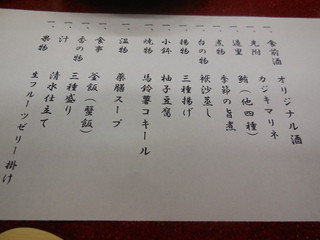 一、食前酒 オリジナル酒
一、先附 カジキマリネ
一、造里 鮪(他四種)
一、煮物 季節の旨煮
一、台の物 袱沙蒸し
一、揚物 三種揚げ
一、小鉢 柚子豆腐
一、焼物 馬鈴薯コキール
一、温物 薬膳スープ
一、食事 釜飯(蟹飯)
一、香の物 三種盛り
一、汁 清水仕立て
一、果物 生フルーツゼリー掛け